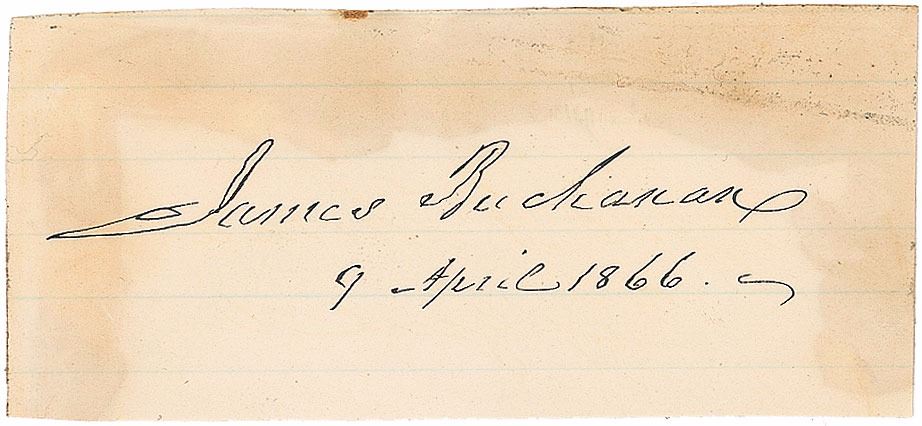 James Buchanan
9 April 1866.